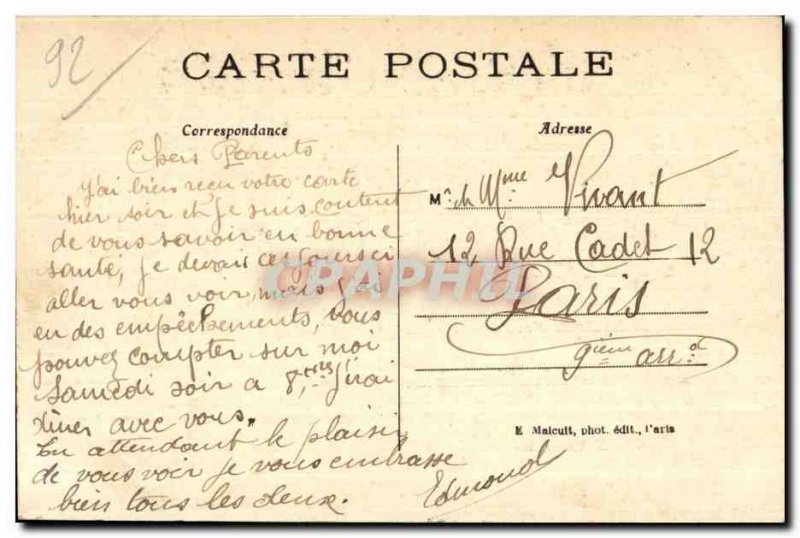 92
CARTE POSTALE
Correspondance
Adresse
Chers Parents
J'ai bien reçu votre carte
hier soir et je suis content
de vous savoir en bonne
santé, je devais ces jours ci
aller vous voir, mais j'ai
eu des empêchements, vous
pouvez compter sur moi
Samedi soir a 8 hres j'irai
diner avec vous.
En attendant le plaisir
de vous voir je vous embrasse
bien tous les deux.
Edmond
Mr & Mme Vivant
12 Rue Cadet 12
Paris
9ième arrd
E Malcuit, phot. édit., Paris
CAPHIL